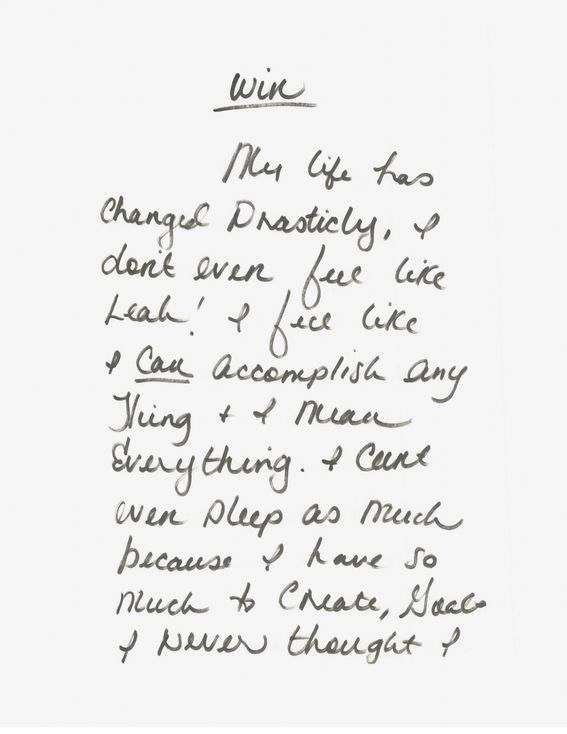 Win
My life has
changed Drasticly, I
don't even feel like
Leah! I feel like
I Can accomplish any
Thing + I Mean
Everything. I Cant
even sleep as much
because I have so
much to Create, Goals
I Never thought I